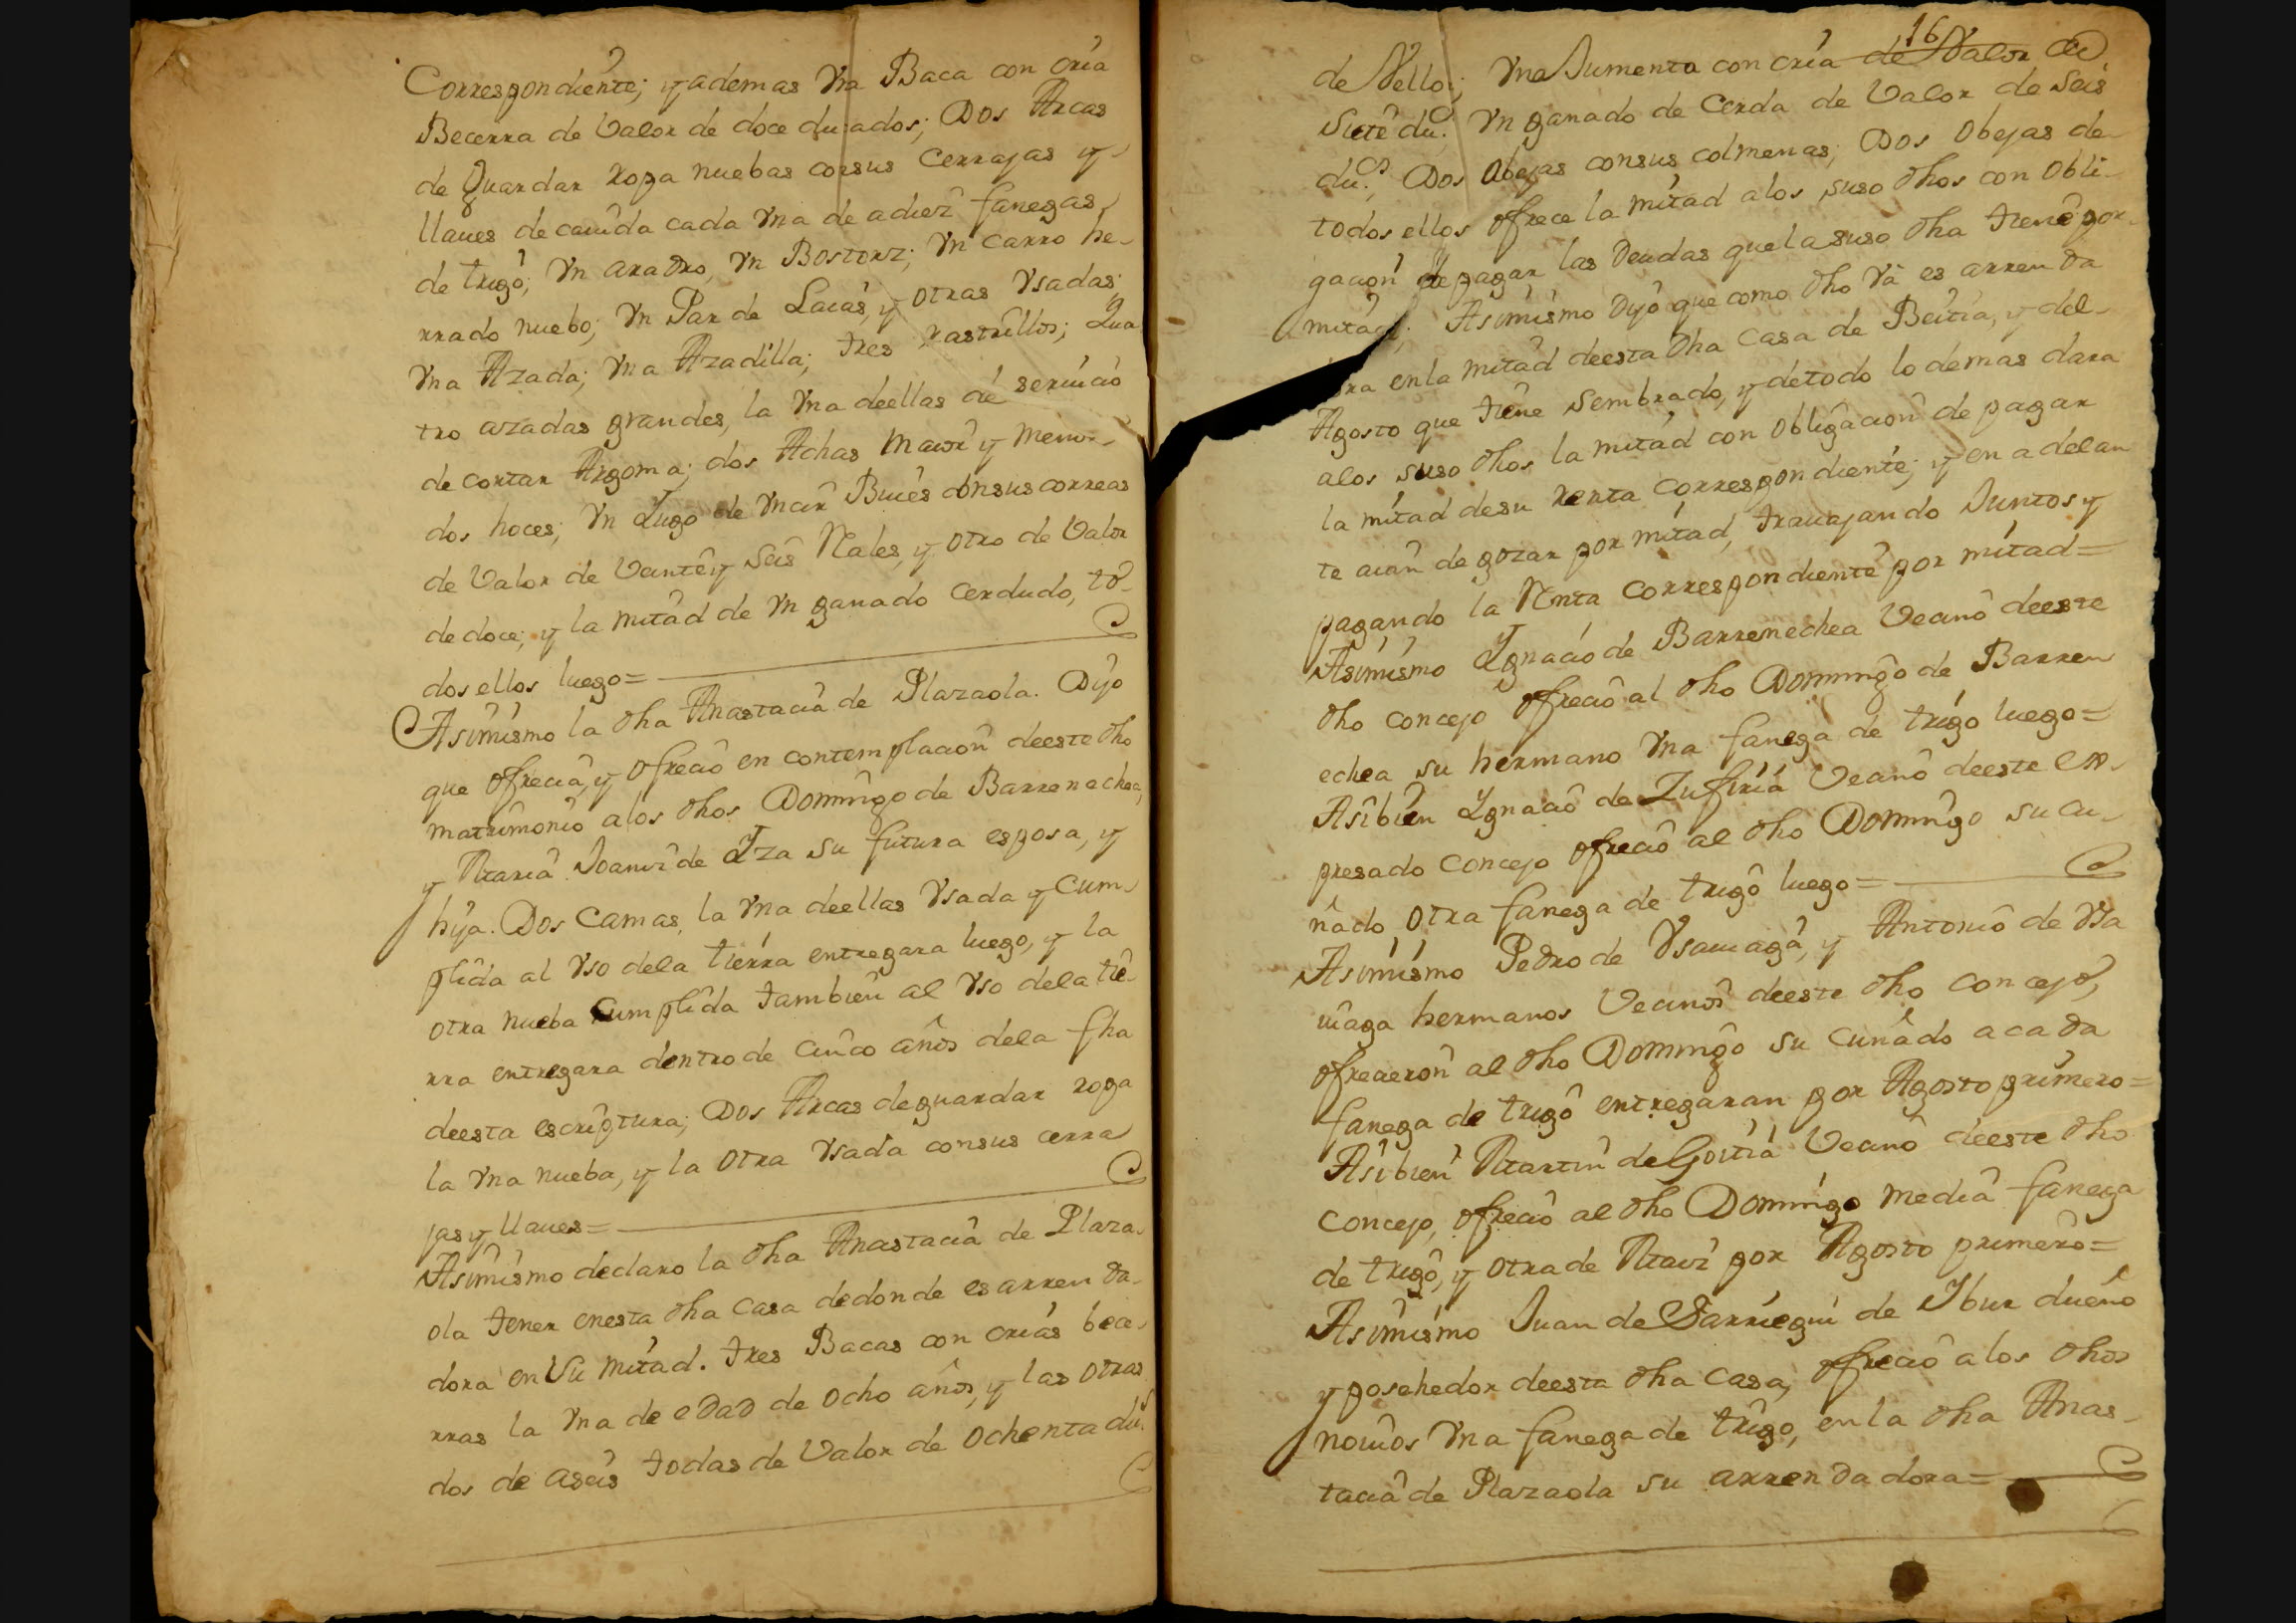 Correspondiente; y ademas Vna Baca con cria
Becerra de Valor de doce ducados; Dos Arcas
de Guardar ropa nuebas con sus Cerrajas y
llaues de cauida cada Vna de a diez fanegas
de trigo; Vn aradro, Vn Bostorz; Vn carro he-
rrado nuebo; Vn Par de Laias, y otras Vsadas;
Vna Azada; Vna Azadilla; tres rastrillos; Qua
tro azadas grandes, la Vna deellas de seruicio
de cortar Argoma; dos Achas maior y menor
dos hoces; Vn Lugo de Vncir Buies con sus correas
de Valor de Veinte y seis Rales, y otro de Valor
de doce; y la mitad de Vn ganado Cerdudo, to-
dos ellos luego=
Asimismo la dha Anastacia de Plazaola. Dijo
que ofrecia, y ofrecio en contemplacion deeste dho
matrimonio a los dhos Domingo de Barrenechea,
y Maria Joaniz de Yza su futura esposa, y
hija. Dos Camas, la Vna deellas Vsada y Cum
plida al Vso dela tierra entregara luego, y la
otra nueba Cumplida tambien al Vso dela tie-
rra entregara dentro de cinco años dela fha
deesta escriptura; Dos Arcas deguardar ropa
la Vna nueba, y la otra Vsada consus cerra
jas y llaues=
Asimismo declaro la dha Anastacia de Plaza
ola tener enesta dha Casa dedonde es arrenda-
dora en Su mitad. tres Bacas con crias bece
rras la Vna de edad de ocho años, y las otras
dos de aseis todas de Valor de ochenta dus.
16
de Vello; Vna Jumenta con cria de Valor de
Siete dus. Vn ganado de Cerda de Valor de seis
dus.; Dos Abejas consus colmenas; Dos obejas de
todos ellos ofrece la mitad alos suso dhos con obli
gacion de pagar las Deudas quela suso dha tiene por
mitad; Asimismo Dijo que como dho Va es arrenda
dora enla mitad deesta dha Casa de Beitia, y del
Agosto que tiene sembrado, y detodo lo demas dara
alos suso dhos la mitad con obligacion de pagar
la mitad desu renta Correspondiente; y en adelan
te aian de gozar por mitad, trauajando Juntos y
pagando la Renta Correspondiente por mitad=
Asimismo Ygnacio de Barrenechea Vecino deeste
dho concejo ofrecio al dho Domingo de Barren
echea su hermano Vna fanega de trigo luego=
Asibien Ygnacio de Zufiria Vecino deeste ex
presado Concejo ofrecio al dho Domingo su cu
ñado otra fanega de trigo luego=
Asimismo Pedro de Vsauiaga, y Antonio de Vsa
uiaga hermanos Vecinos deeste dho concejo,
ofrecieron al dho Domingo su cuñado acada
fanega de trigo entregaran por Agosto primero=
Asibien Martin de Goitia Vecino deeste dho
Concejo, ofrecio al dho Domingo media fanega
de trigo, y otra de Maiz por Agosto primero=
Asimismo Juan de Sarriegui de Ybur dueño
y posehedor deesta dha casa, ofrecio alos dhos
nouios Vna fanega de trigo, en la dha Anas-
tacia de Plazaola su arrendadora=